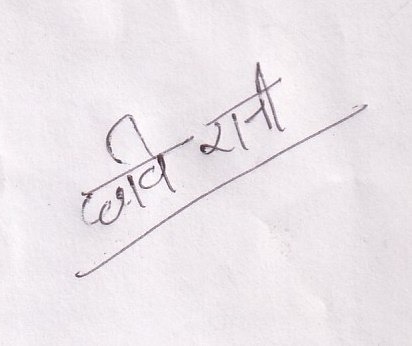 छवि रानी